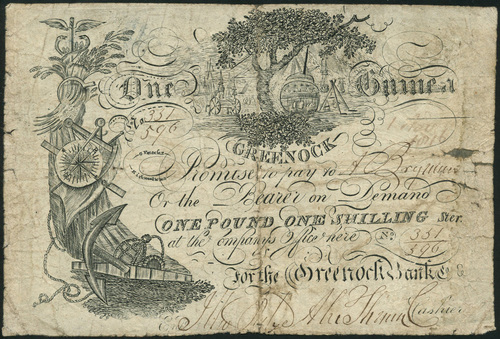 One Guinea
No. 351
596
GREENOCK
Promise to pay to
Or the Bearer on Demand
ONE POUND ONE SHILLING Ster.
at the Company's Office here No. 351
596
For the Greenock Bank Co.
Cashier